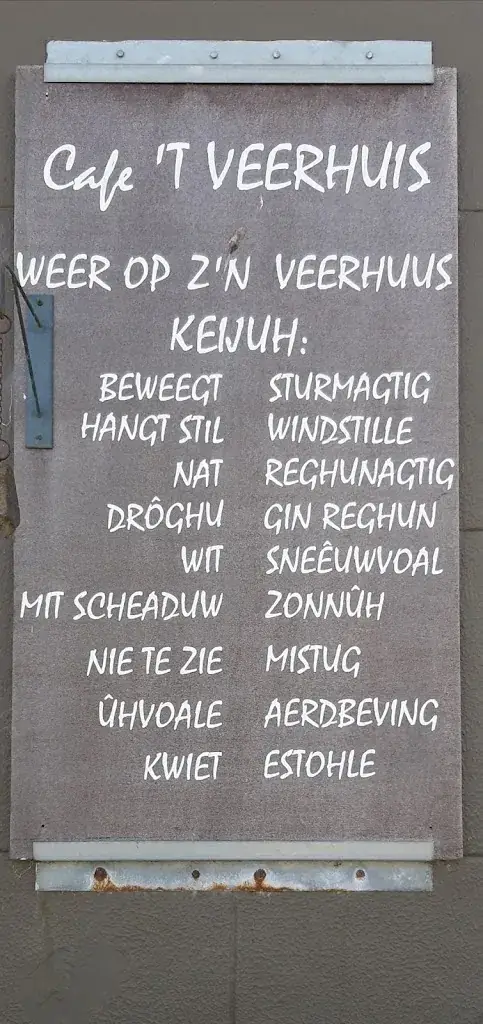 Cafe 'T VEERHUIS
WEER OP Z'N VEERHUUS
KEIJUH:
BEWEEGT STURMAGTIG
HANGT STIL WINDSTILLE
NAT REGHUNAGTIG
DRÔGHU GIN REGHUN
WIT SNEÊUWVOAL
MIT SCHEADUW ZONNÛH
NIE TE ZIE MISTUG
ÛHVOALE AERDBEVING
KWIET ESTOHLE